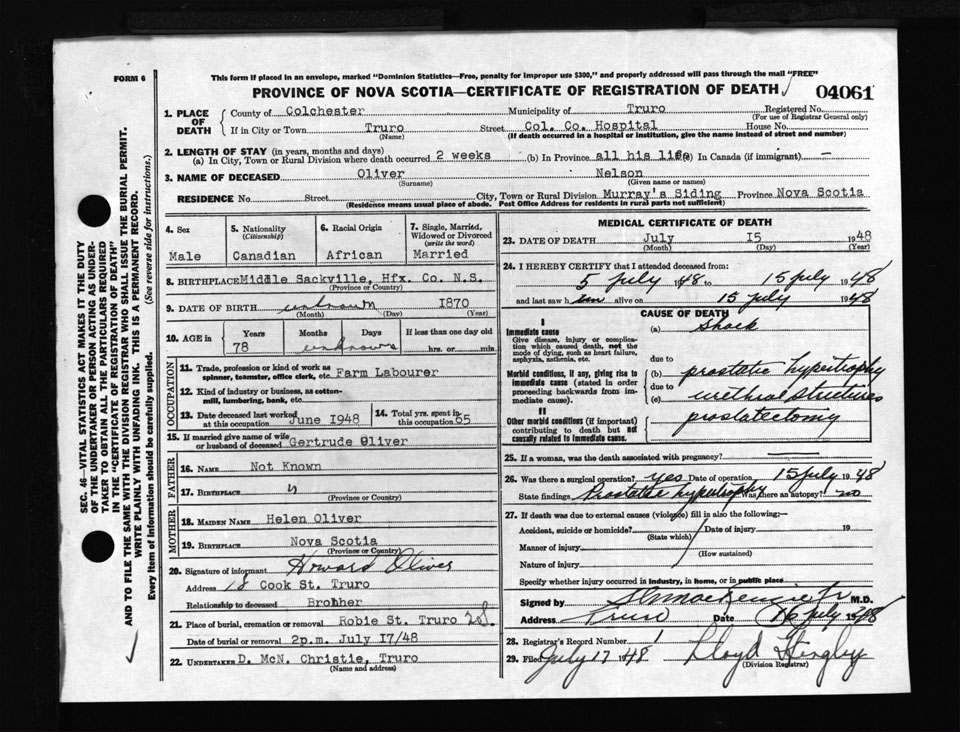 FORM 6
This form if placed in an envelope, marked "Dominion Statistics—Free, penalty for improper use $300," and properly addressed will pass through the mail "FREE"
PROVINCE OF NOVA SCOTIA—CERTIFICATE OF REGISTRATION OF DEATH
04061
1. PLACE OF DEATH
County of Colchester Municipality of Truro Registered No.
(For use of Registrar General only)
If in City or Town Truro Street Col. Co. Hospital House No.
(Name) (If death occurred in a hospital or institution, give the name instead of street and number)
2. LENGTH OF STAY (in years, months and days)
(a) In City, Town or Rural Division where death occurred 2 weeks (b) In Province all his life (c) In Canada (if immigrant) —
3. NAME OF DECEASED Oliver Nelson
(Surname) (Given name or names)
RESIDENCE No. Street City, Town or Rural Division Murray's Siding Province Nova Scotia
(Residence means usual place of abode. Post Office Address for residents in rural parts not sufficient)
4. Sex
Male
5. Nationality
(Citizenship)
Canadian
6. Racial Origin
African
7. Single, Married, Widowed or Divorced
(write the word)
Married
8. BIRTHPLACE Middle Sackville, Hfx. Co. N.S.
(Province or Country)
9. DATE OF BIRTH unknown 1870
(Month) (Day) (Year)
10. AGE in
Years
78
Months
Days
unknown
If less than one day old
hrs. or min.
OCCUPATION
11. Trade, profession or kind of work as spinner, teamster, office clerk, etc. Farm Labourer
12. Kind of industry or business, as cotton-mill, lumbering, bank, etc.
13. Date deceased last worked at this occupation June 1948
14. Total yrs. spent in this occupation 65
15. If married give name of wife or husband of deceased Gertrude Oliver
FATHER
16. NAME Not Known
17. BIRTHPLACE
(Province or Country)
MOTHER
18. MAIDEN NAME Helen Oliver
19. BIRTHPLACE Nova Scotia
(Province or Country)
20. Signature of informant Howard Oliver
Address 18 Cook St. Truro
Relationship to deceased Brother
21. Place of burial, cremation or removal Robie St. Truro
Date of burial or removal 2p.m. July I7/48
22. UNDERTAKER D. McN. Christie, Truro
(Name and address)
MEDICAL CERTIFICATE OF DEATH
23. DATE OF DEATH July I5 1948
(Month) (Day) (Year)
24. I HEREBY CERTIFY that I attended deceased from:
5 July 1948 to 15 July 1948
and last saw him alive on 15 July 1948
CAUSE OF DEATH
I
Immediate cause
Give disease, injury or complication which caused death, not the mode of dying, such as heart failure, asphyxia, asthenia, etc.
(a) Shock
due to
Morbid conditions, if any, giving rise to immediate cause (stated in order proceeding backwards from immediate cause).
(b) prostatic hypertrophy
due to
(c) urethral strictures
II
Other morbid conditions (if important) contributing to death but not causally related to immediate cause.
prostatectomy
25. If a woman, was the death associated with pregnancy? —
26. Was there a surgical operation? yes Date of operation 15 July 1948
State findings Prostatic hypertrophy Was there an autopsy? no
27. If death was due to external causes (violence) fill in also the following:—
Accident, suicide or homicide? Date of injury 19
(State which)
Manner of injury
(How sustained)
Nature of injury
Specify whether injury occurred in industry, in home, or in public place
Signed by M.D.
Address Truro Date 16 July 1948
28. Registrar's Record Number 1
29. Filed July 17 1948 Lloyd
(Division Registrar)
SEC. 46—VITAL STATISTICS ACT MAKES IT THE DUTY
OF THE UNDERTAKER OR PERSON ACTING AS UNDER-
TAKER TO OBTAIN ALL THE PARTICULARS REQUIRED
IN THE "CERTIFICATE OF REGISTRATION OF DEATH"
AND TO FILE THE SAME WITH THE DIVISION REGISTRAR WHO SHALL ISSUE THE BURIAL PERMIT.
WRITE PLAINLY WITH UNFADING INK. THIS IS A PERMANENT RECORD.
Every item of information should be carefully supplied. (See reverse side for instructions.)